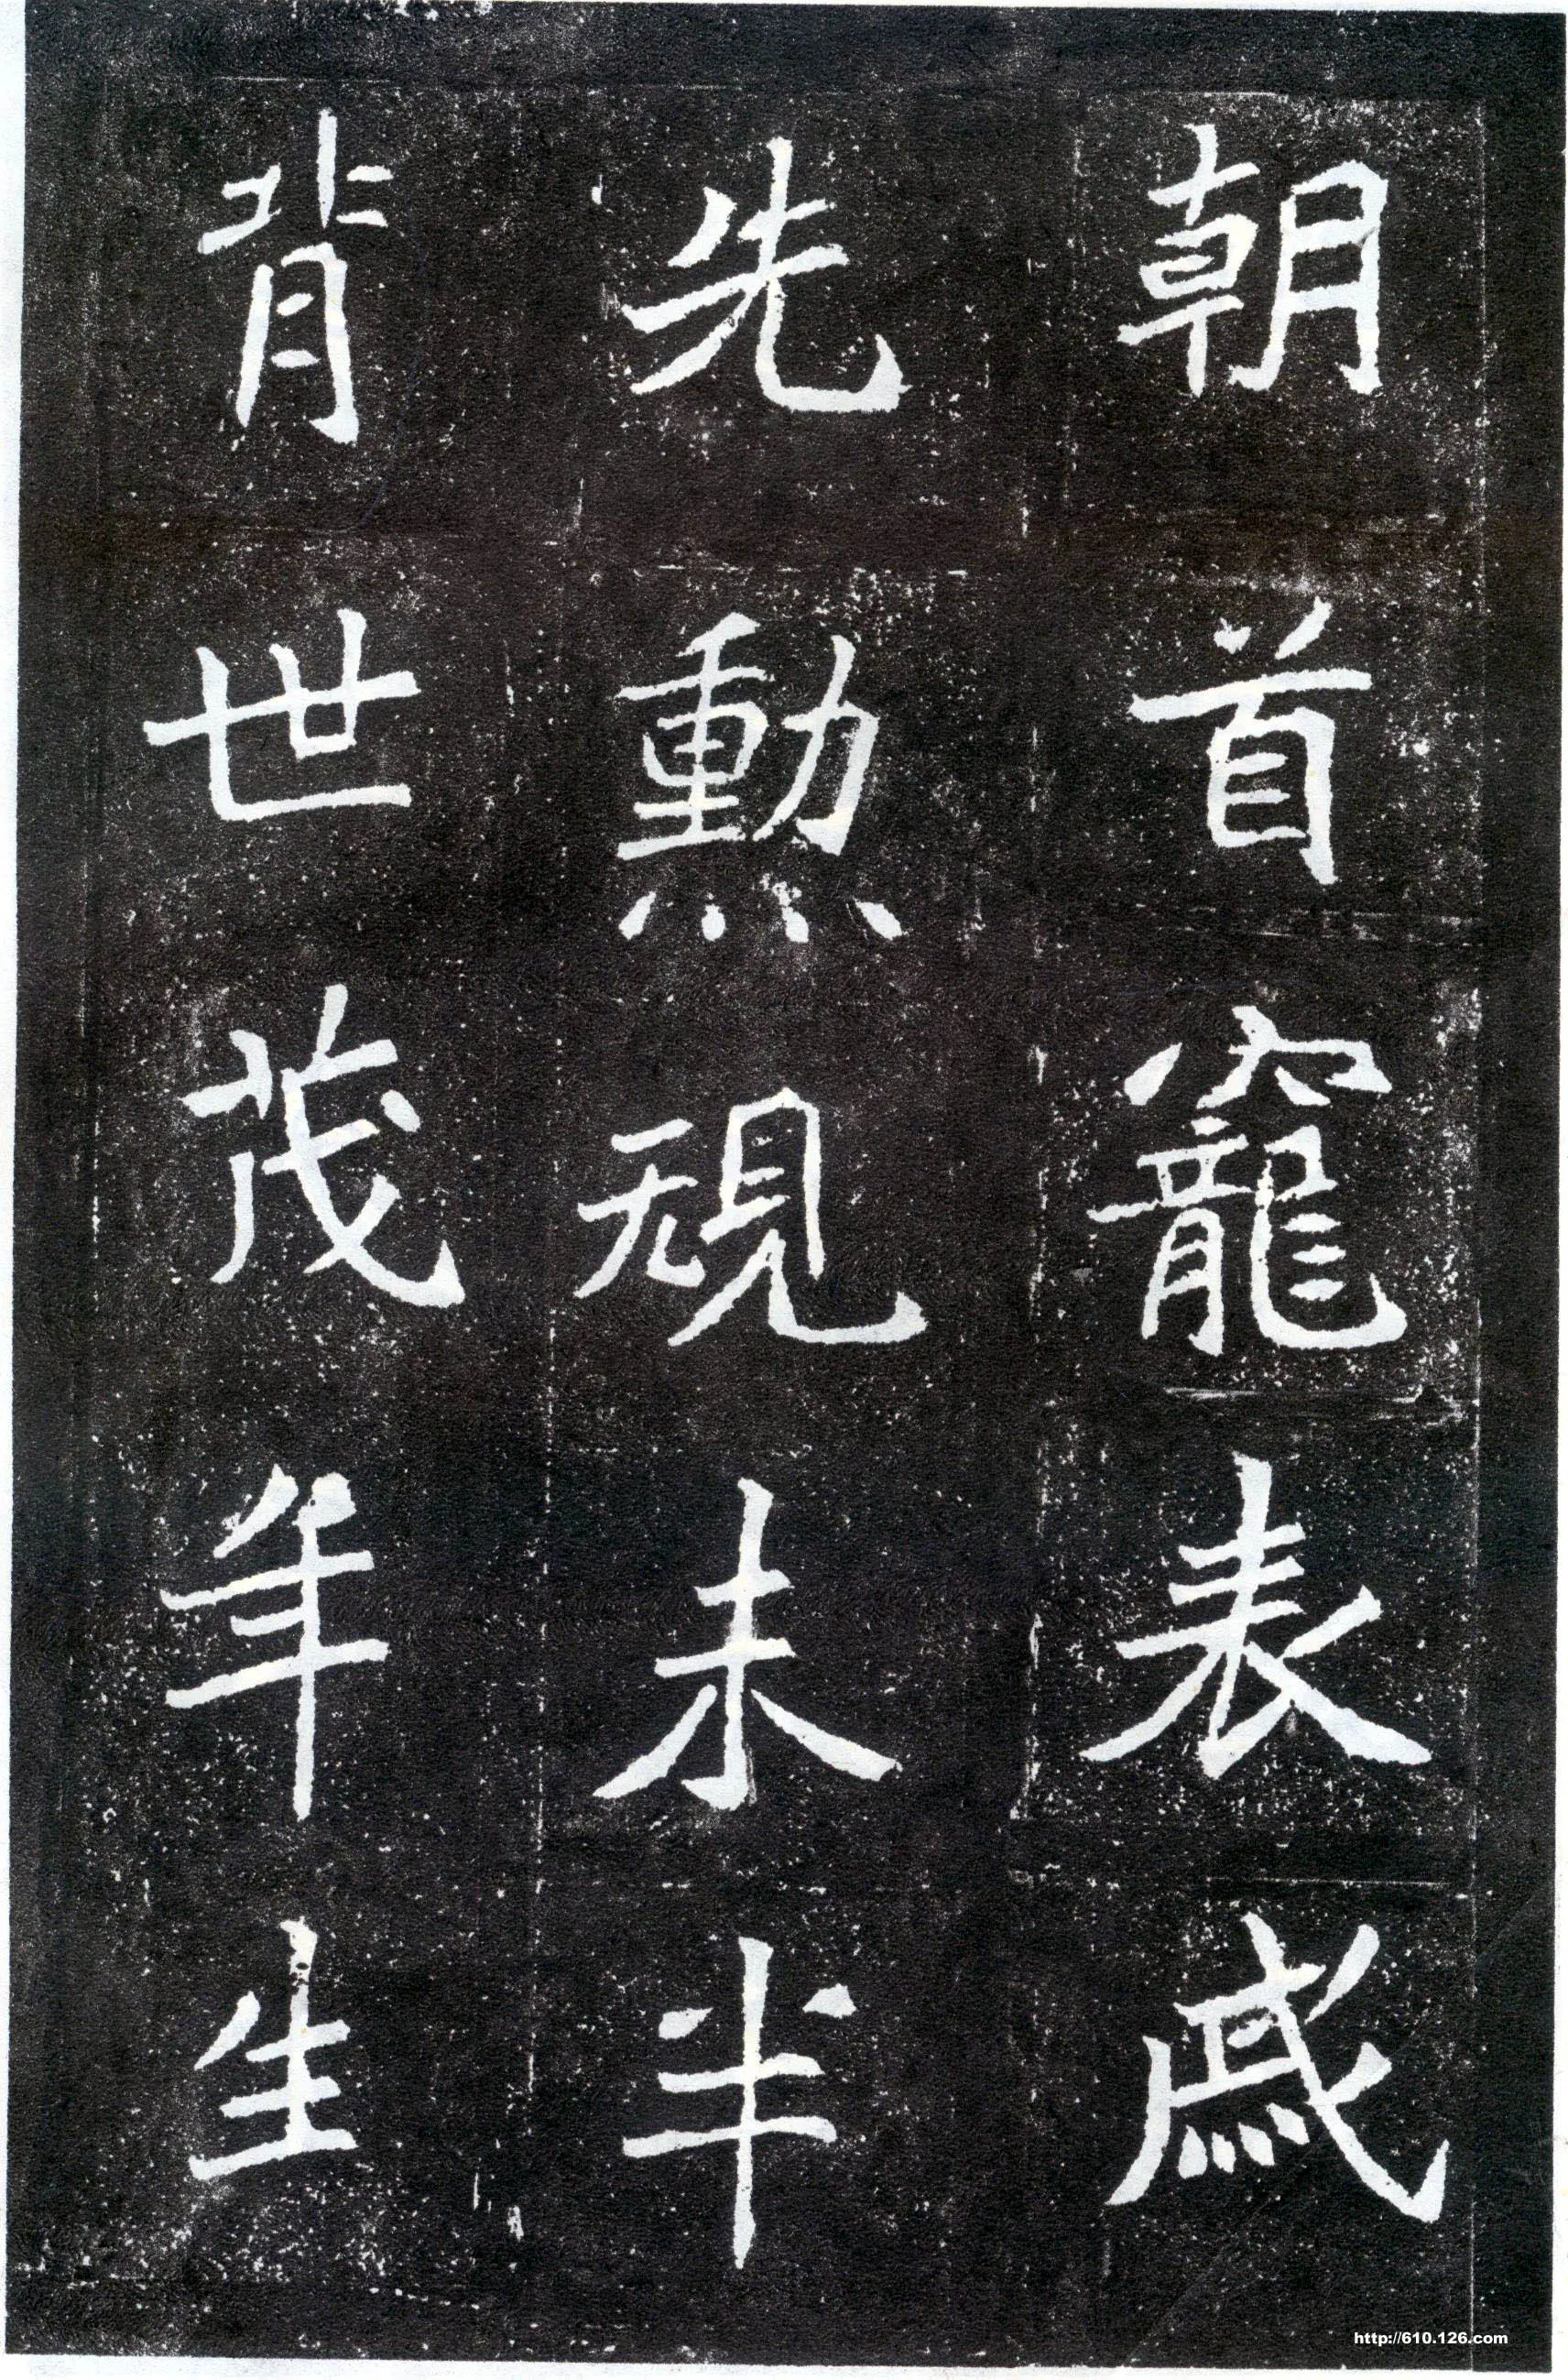 朝首竉表
先勲規未半
背世茂年生
http://610.126.com